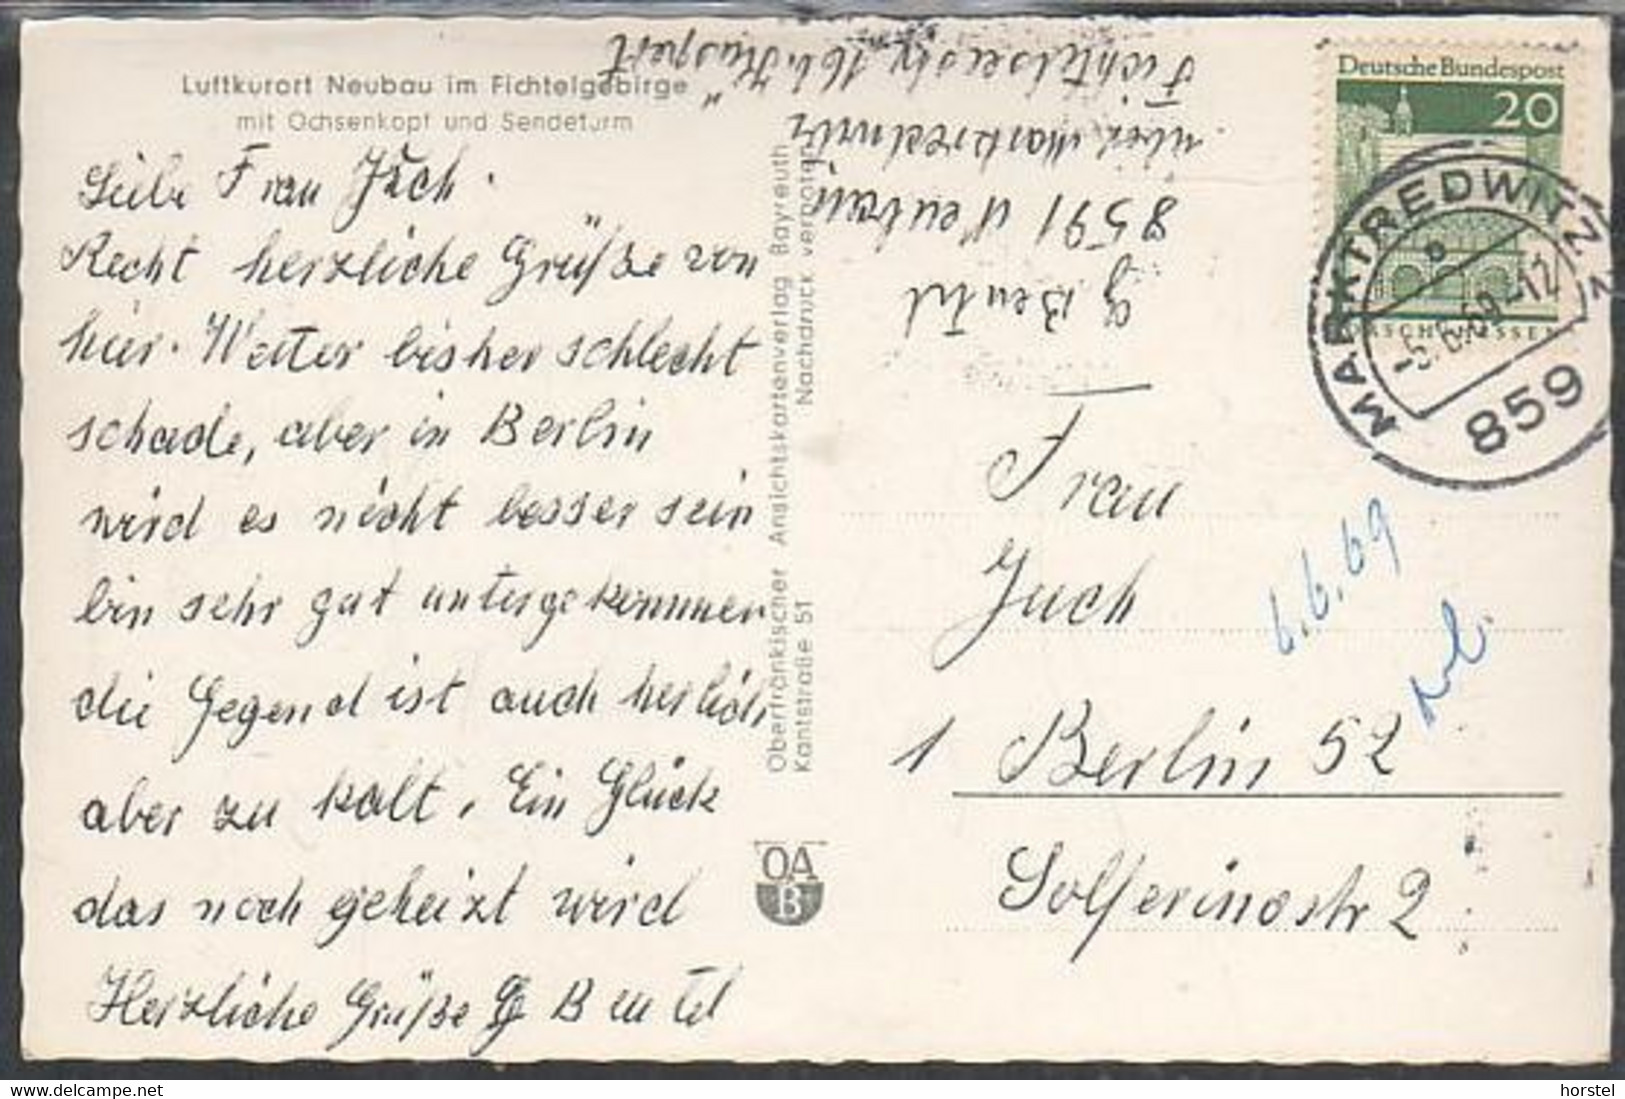 Luftkurort Neubau im Fichtelgebirge
mit Ochsenkopf und Sendeturm
Liebe Frau Juch.
Recht herzliche Grüße von
hier. Wetter bisher schlecht
schade, aber in Berlin
wird es nicht besser sein
bin sehr gut untergekommen
die Gegend ist auch herrlich,
aber zu kalt. Ein Glück
das noch geheizt wird
Herzliche Grüße G Beutel
Oberfränkischer Ansichtskartenverlag Bayreuth
Kantstraße 51 Nachdruck verboten
OA
B
G Beutel
8591 Neubau
über Marktredwitz
Deutsche Bundespost
20
MARKTREDWITZ 2
-5.6.69-12
859
Frau
Juch
1 Berlin 52
Solferinostr 2
6.6.69
delcampe.net
horstel